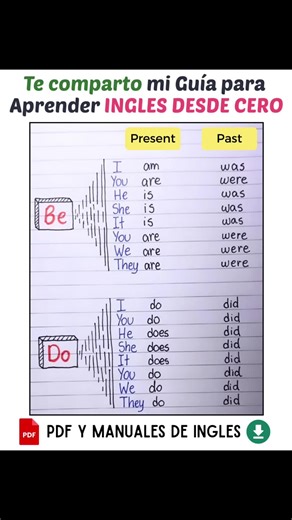 Te comparto mi Guía para
Aprender INGLES DESDE CERO
Present Past
Be
I am was
You are were
He is was
She is was
It is was
You are were
We are were
They are were
Do
I do did
You do did
He does did
She does did
It does did
You do did
We do did
They do did
PDF PDF Y MANUALES DE INGLES